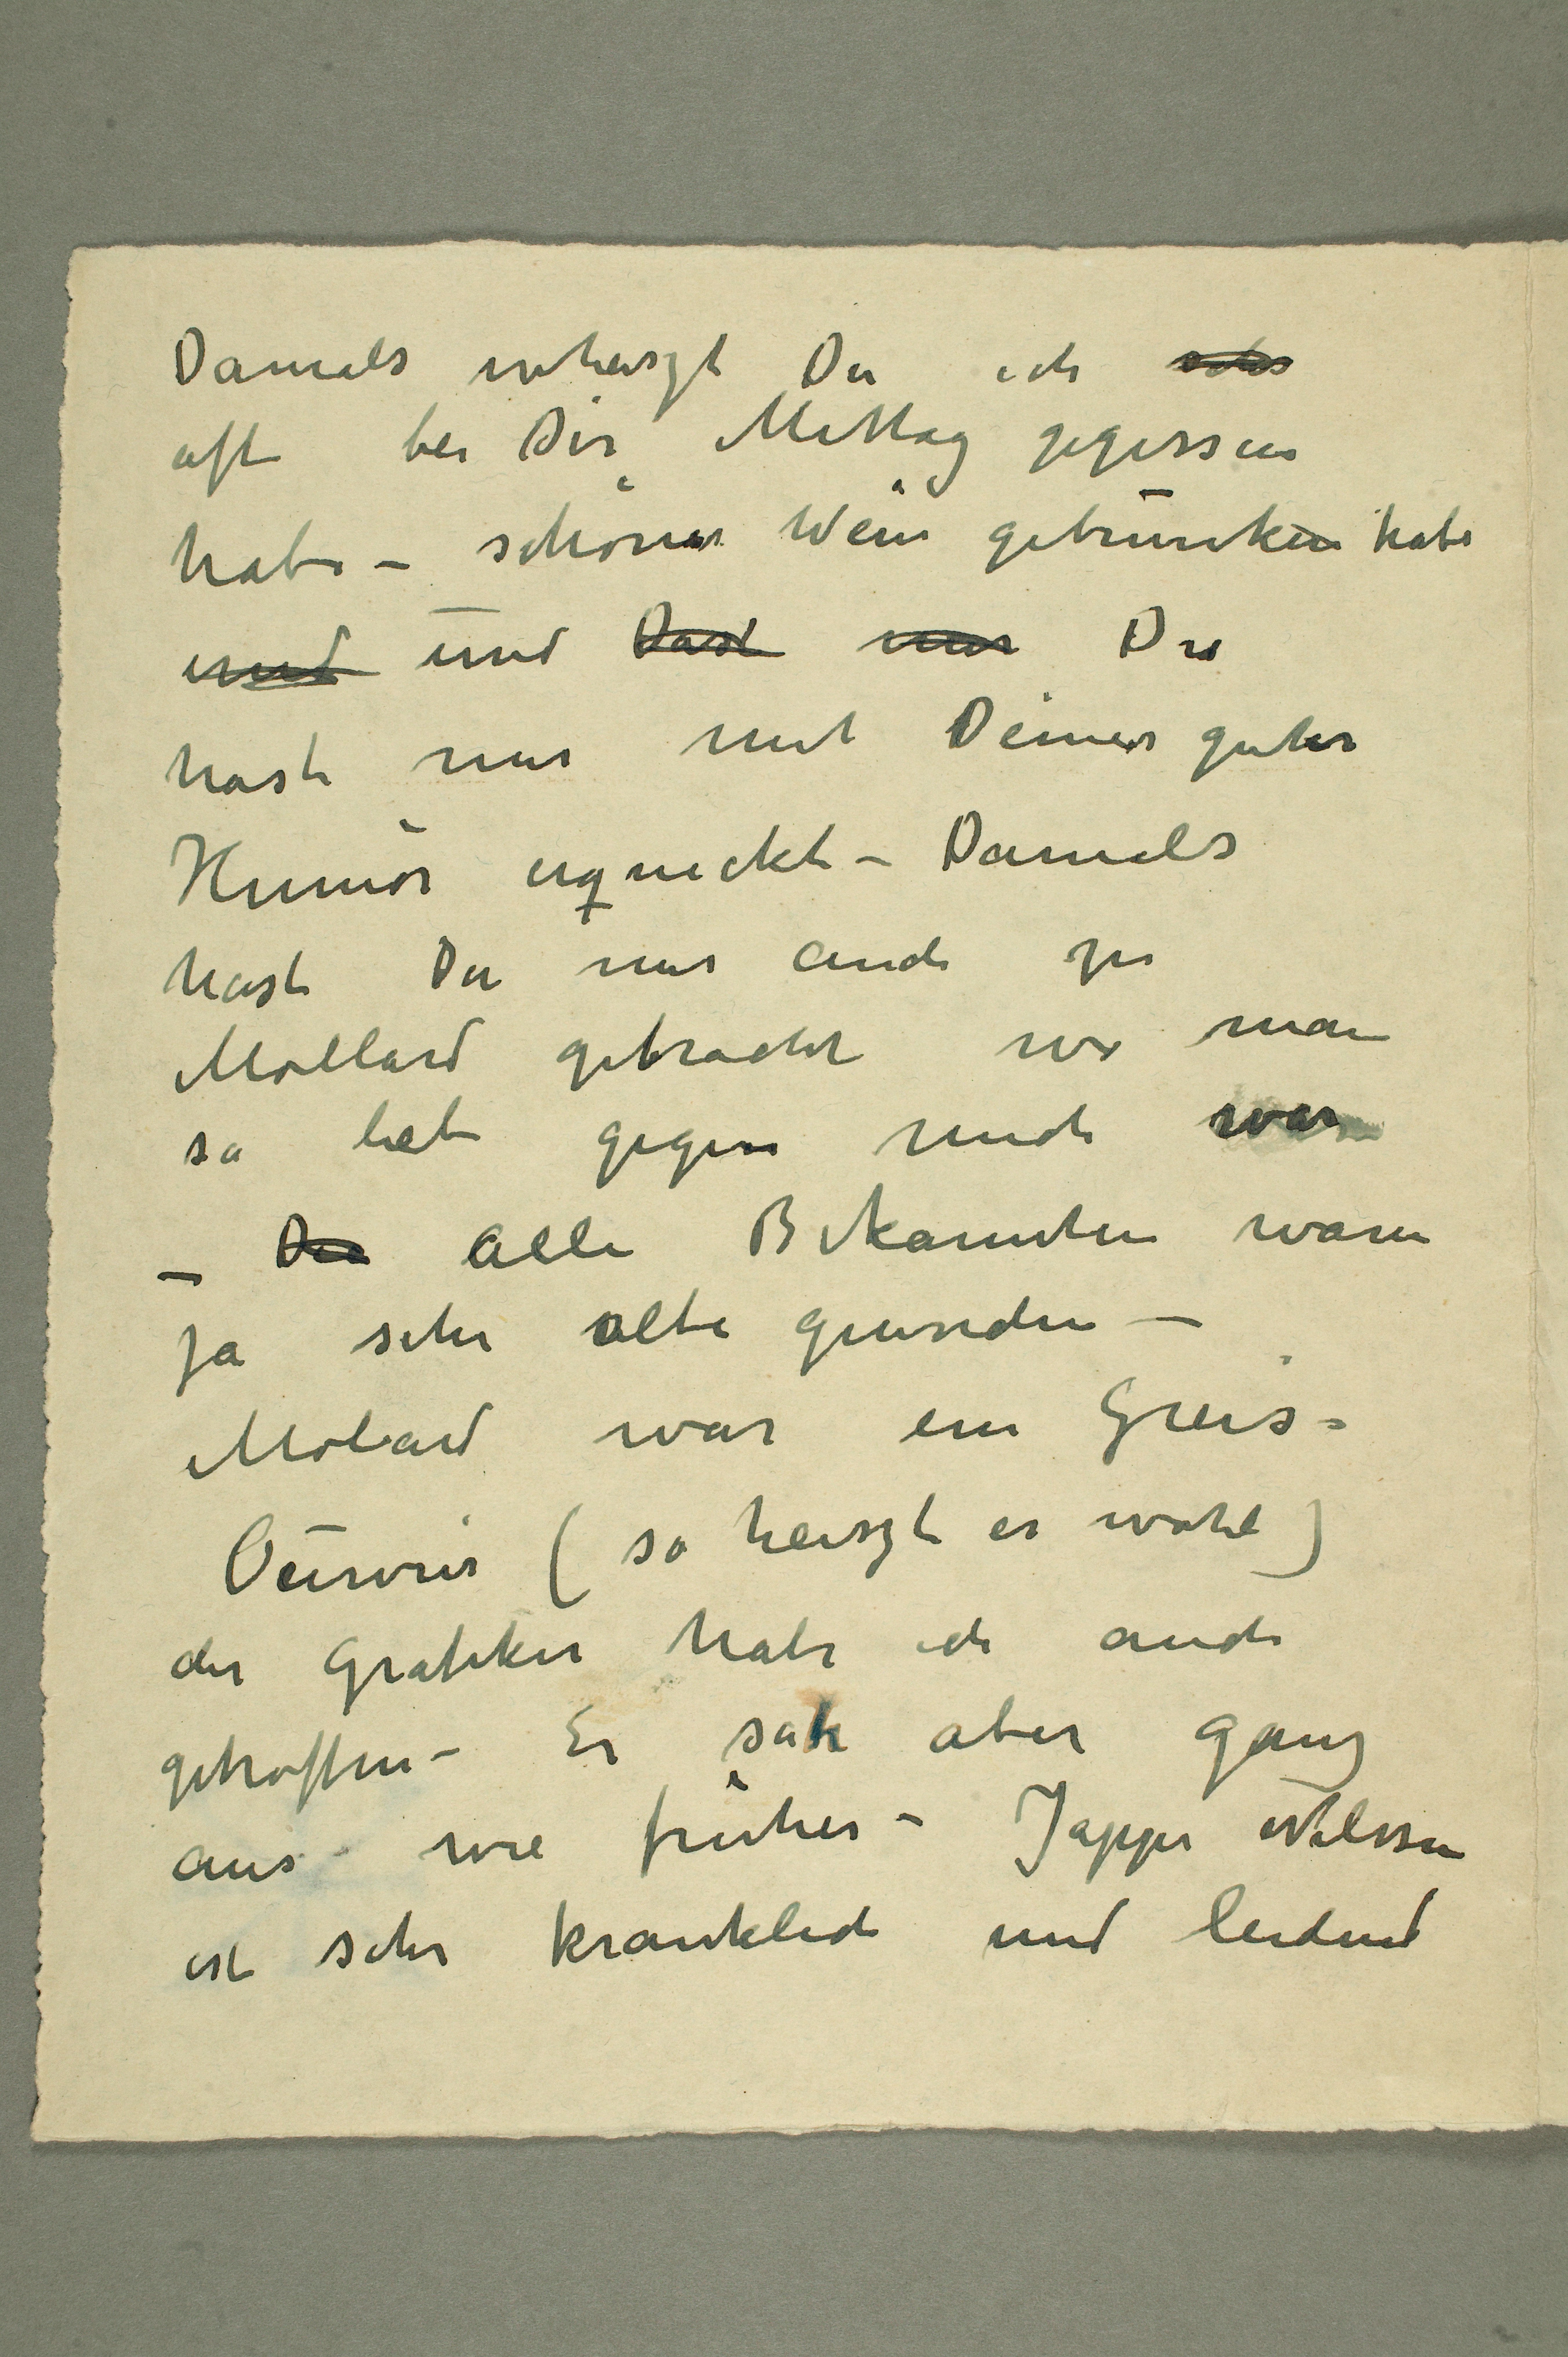 Damals weiszt Du ich
oft bei Dir Mittag gegessen
habe – schöner Wein getrunken habe
und und Dast mir Du
hast mir mit Deiner guter
Humör erquickt – Damals
hast Du mir auch zu
Mollard gebracht wo man
so lieb gegen mich war
– Die Alle Bekannten waren
ja sehr alte geworden –
Molard war ein Greis –
(so heiszt er wohl)
der Grafiker habe ich auch
getroffen – Er sah aber ganz
aus wie früher – Jappe Nilssen
ist sehr kranklich und leidend